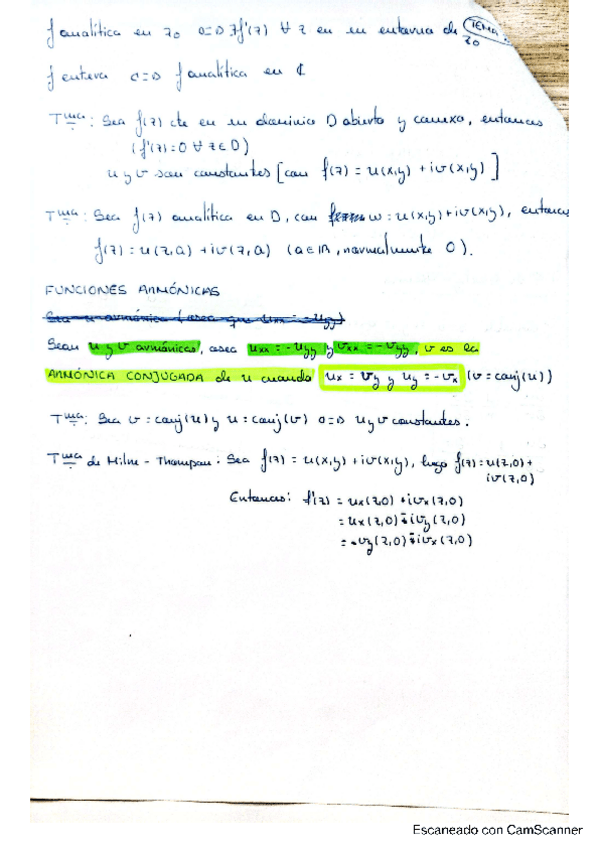 f analítica en z0 ⇔ ∃f'(z) ∀ z en un entorno de z0
TEMA
f entera ⇔ f analítica en ℂ
Tma: Sea f(z) cte en un dominio D abierto y conexo, entonces
(f'(z)=0 ∀ z∈D)
u y v son constantes [con f(z) = u(x,y) + iv(x,y)]
Tma: Sea f(z) analítica en D, con w = u(x,y)+iv(x,y), entonces
f(z) = u(z,a) + iv(z,a) (a∈ℝ, normalmente 0).
FUNCIONES ARMÓNICAS
Sea u armónica (osea que uxx = -uyy)
Sean u y v armónicas, osea uxx = -uyy y vxx = -vyy, v es la
ARMÓNICA CONJUGADA de u cuando ux = vy y uy = -vx (v = conj(u))
Tma: Sea v = conj(u) y u = conj(v) ⇔ u y v constantes.
Tma de Milne - Thompson: Sea f(z) = u(x,y) + iv(x,y), luego f(z) = u(z,0) +
iv(z,0)
Entonces: f'(z) = ux(z,0) + ivx(z,0)
= ux(z,0) ivy(z,0)
= vy(z,0) ivx(z,0)
Escaneado con CamScanner